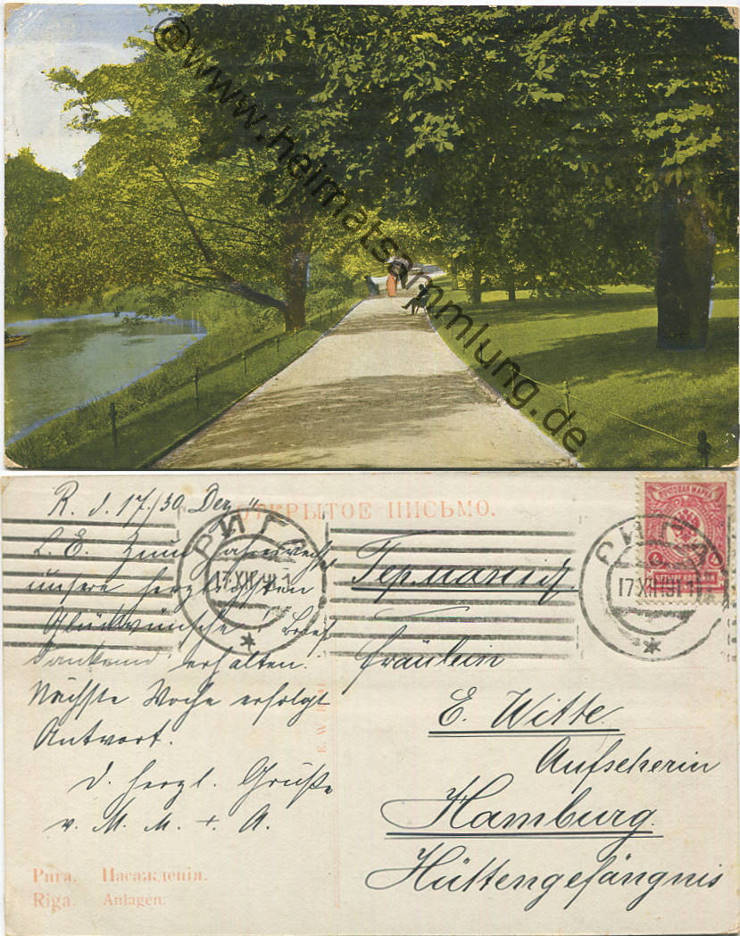 ©www.heimatsammlung.de
R. d. 17./30. Dez.
ОТКРЫТОЕ ПИСЬМО.
L. E. Zum Jahreswechsel
unsere herzlichsten
Glückwünsche! Brief
dankend erhalten.
Nächste Woche erfolgt
Antwort.
d. herzl. Grüße
v. M. M. + A.
РИГА
17 XII 1911
РИГА
17 XII 1911
Германія.
Fräulein
E. Witte
Aufseherin
Hamburg.
Hüttengefängnis
Рига. Насажденія.
Riga. Anlagen.